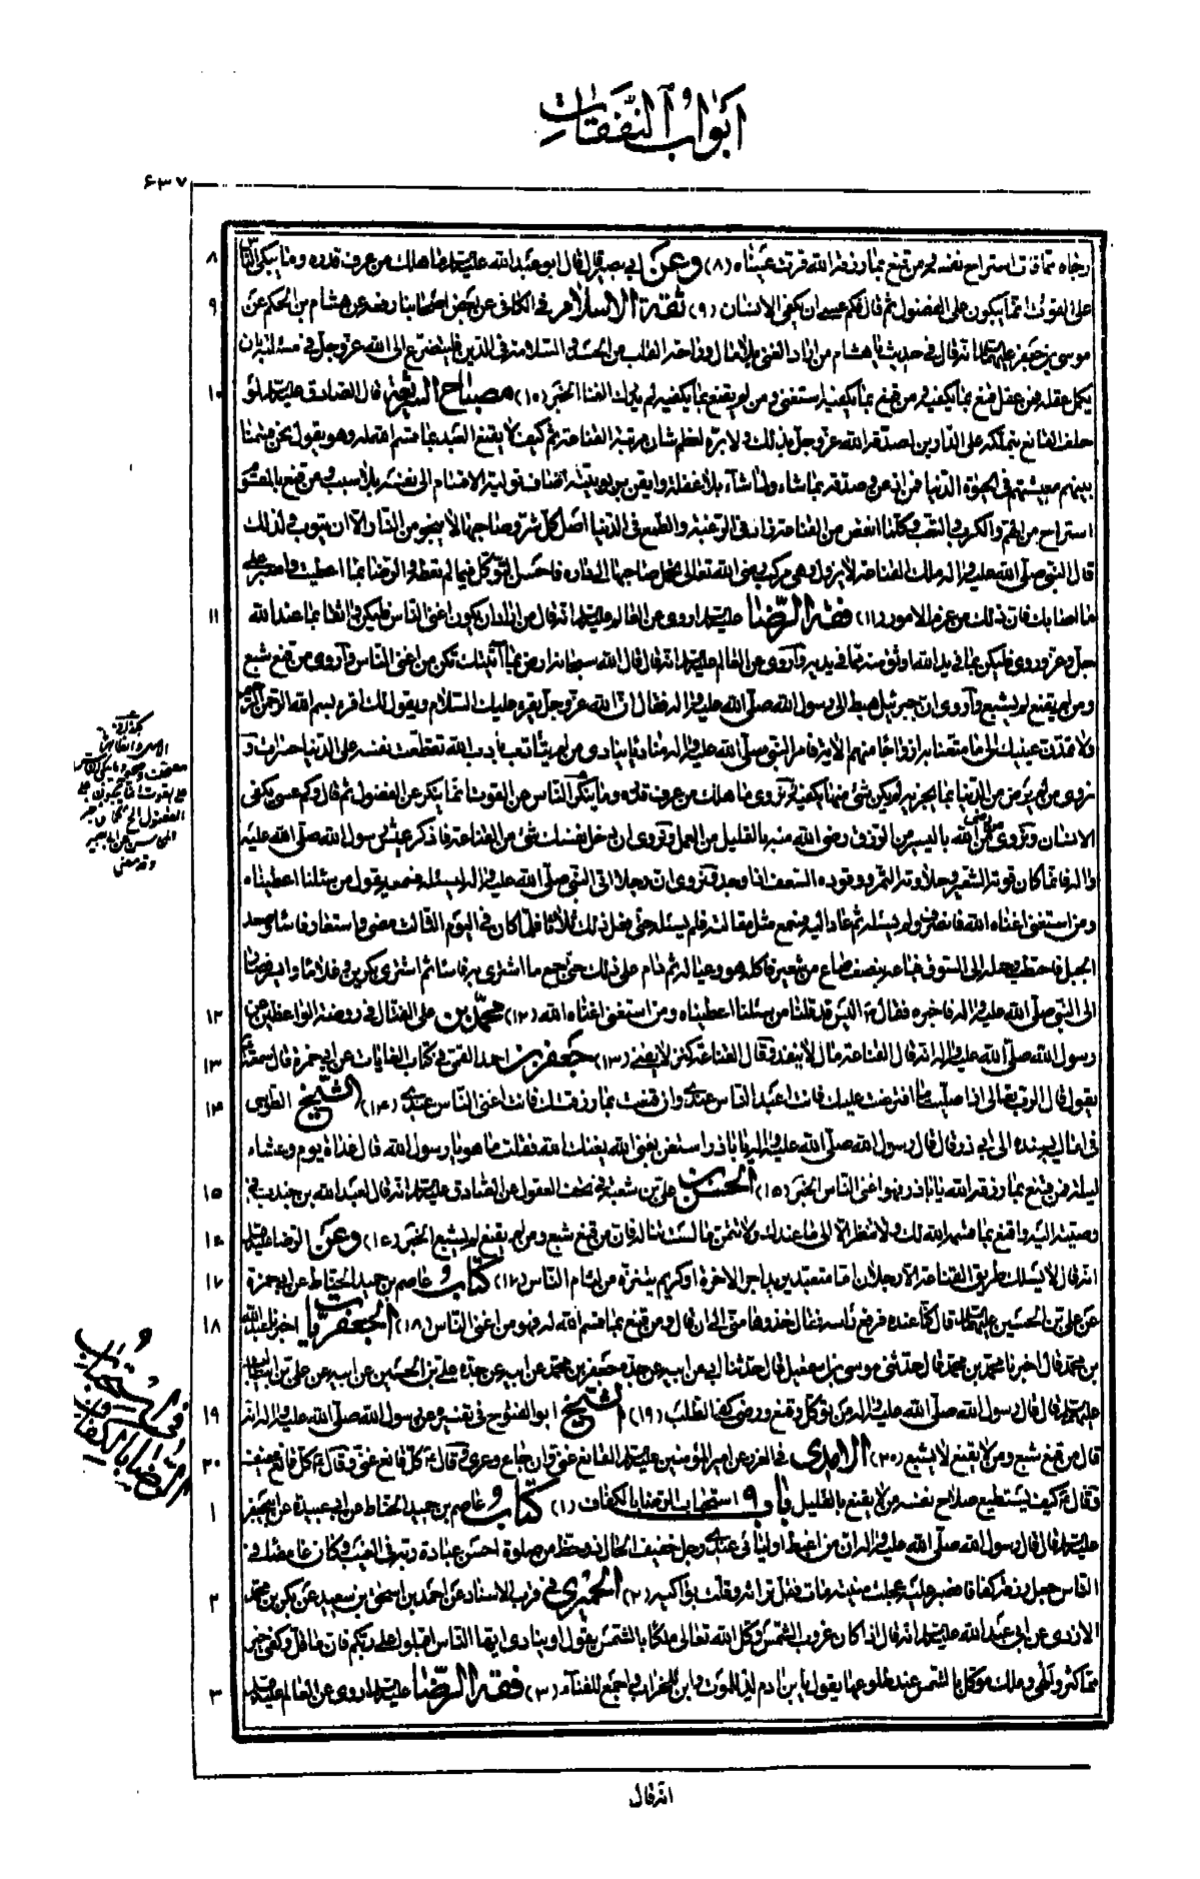 ابواب النفقات
۶۳۷
رجاه مما فات استراح نفسه و من قنع بما رزقه الله قرت عيناه (٨) وعن ابى بصير قال قال ابو عبد الله عليه السلام ما هلك من عرف قدره وما يبكى الناس
على القوت انما يبكون على الفضول ثم قال فكم عسى ان يكفى الانسان (٩) ثقة الاسلام فى الكافى عن بعض اصحابنا رفعه عن هشام بن الحكم عن
موسى بن جعفر عليهما السلام انه قال فى حديث يا هشام من اراد الغنى بلا مال وراحة القلب من الحسد والسلامة فى الدين فليتضرع الى الله عز وجل فى مسئلته بان
يكمل عقله فمن عقل قنع بما يكفيه ومن قنع بما يكفيه استغنى ومن لم يقنع بما يكفيه لم يدرك الغنا الخبر (١٠) مصباح الشريعة قال الصادق عليه السلام لو
حلف القانع بتملكه على الدارين لصدقه الله عز وجل بذلك ولابره لعظم شان مرتبة القناعة ثم كيف لا يقنع العبد بما قسم الله له وهو يقول نحن قسمنا
بينهم معيشتهم فى الحيوة الدنيا فمن اذعن وصدقه بما شاء ولما شاء بلا غفلة وايقن بربوبيته اضاف تولية الاقسام الى نفسه بلا سبب ومن قنع بالمقسوم
استراح من الهم والكرب والتعب وكلما انقص من القناعة زاد فى الرغبة والطمع فى الدنيا اصل كل شر وصاحبها لا ينجو من النار الا ان يتوب ولذلك
قال النبى صلى الله عليه واله ملك القناعة لا يزول وهى مركب رضى الله تعالى تحمل صاحبها الى داره فاحسن التوكل فيما لم تعطه والرضا بما اعطيت واصبر على
ما اصابك فان ذلك من عزم الامور (١١) فقه الرضا عليه السلام اروى عن العالم عليه السلام انه قال من اراد ان يكون اغنى الناس فليكن واثقا بما عند الله
جل وعز وروى فليكن بما فى يد الله اوثق منه مما فى يديه واروى عن العالم عليه السلام انه قال قال الله سبحانه ارض بما آتيتك تكن من اغنى الناس واروى من قنع شبع
ومن لم يقنع لم يشبع واروى ان جبرئيل هبط الى رسول الله صلى الله عليه واله فقال ان الله عز وجل يقرء عليك السلام ويقول لك اقرء بسم الله الرحمن الرحيم
ولا تمدن عينيك الى ما متعنا به ازواجا منهم الاية فامر النبى صلى الله عليه واله مناديا ينادى من لم يتادب بادب الله تقطعت نفسه على الدنيا حسرات و
نروى من لم يرض من الدنيا بما يجزيه لم يكن شئ منها يكفيه ونروى ما هلك من عرف قدره وما ينكر الناس عن القوت انما ينكر عن الفضول ثم قال وكم عسى يكفى
الانسان ونروى من رضى عن الله باليسير من الرزق رضى الله منه بالقليل من العمل ونروى ان دخل نفسك شئ من القناعة فاذكر عيش رسول الله صلى الله عليه
واله فانما كان قوته الشعير وحلاوته التمر ووقوده السعف اذا وجد ونروى ان رجلا اتى النبى صلى الله عليه واله ليسئله فسمعه يقول من سئلنا اعطيناه
ومن استغنى اغناه الله فانصرف ولم يسئله ثم عاد اليه فسمع مثل مقالته فلم يسئله حتى فعل ذلك ثلاثا فلما كان فى اليوم الثالث مضى واستعار فاسا وصعد
الجبل فاحتطب وحمله الى السوق فباعه بنصف صاع من شعير فاكله هو وعياله ثم دام على ذلك حتى جمع ما اشترى به فاسا ثم اشترى بكرين وغلاما وايسر فصار
الى النبى صلى الله عليه واله فاخبره فقال اليس قد قلنا من سئلنا اعطيناه ومن استغنى اغناه الله (١٢) محمد بن على الفتال فى روضة الواعظين عن
رسول الله صلى الله عليه واله انه قال القناعة مال لا ينفد وقال القناعة كنز لا يفنى (١٣) جعفر بن احمد القمى فى كتاب الغايات عن ابى حمزة قال سمعته
يقول قال الرب تعالى اذا صليت ما افترضت عليك فانت اعبد الناس عندى وان قنعت بما رزقتك فانت اغنى الناس عندى (١٤) الشيخ الطوسى
فى اماليه بسنده الى ابى ذر قال قال رسول الله صلى الله عليه واله يا باذر استغن بغنى الله يغنك الله فقلت ما هو يا رسول الله قال غداة يوم وعشاء
ليلة فمن قنع بما رزقه الله يا باذر فهو اغنى الناس الخبر (١٥) الحسن بن على بن شعبة فى تحف العقول عن الصادق عليه السلام انه قال لعبد الله بن جندب فى
وصيته اليه واقنع بما قسمه الله لك ولا تنظر الا الى ما عندك ولا تتمن ما لست تناله فان من قنع شبع ومن لم يقنع لم يشبع الخبر (١٦) وعن الرضا عليه السلام
انه قال لا يسلك طريق القناعة الا رجلان اما متعبد يريد اجر الاخرة او كريم يتنزه من لئام الناس (١٧) كتاب عاصم بن حميد الحناط عن ابى حمزة
عن على بن الحسين عليهما السلام قال كنا عنده فرفع راسه فقال خذوها منى الى ان قال ومن قنع بما قسم الله له فهو من اغنى الناس (١٨) الجعفريات اخبرنا عبد الله
بن محمد قال اخبرنا محمد بن محمد قال حدثنى موسى بن اسمعيل قال حدثنا ابى عن ابيه عن جده جعفر بن محمد عن ابيه عن جده على بن الحسين عن ابيه عن على بن ابيطالب
عليهم السلام قال قال رسول الله صلى الله عليه واله من توكل وقنع ورضى كفى الطلب (١٩) الشيخ ابو الفتوح فى تفسيره عن رسول الله صلى الله عليه واله انه
قال من قنع شبع ومن لا يقنع لا يشبع (٢٠) الامدى فى الغرر عن امير المؤمنين عليه السلام القانع غنى وان جاع وعرى وقال كل قانع غنى وقال كل قانع عفيف
وقال كيف يستطيع صلاح نفسه من لا يقنع بالقليل باب ٩ استحباب الرضا بالكفاف (١) كتاب عاصم بن حميد الحناط عن ابى عبيدة عن ابى جعفر
عليه السلام قال قال رسول الله صلى الله عليه واله ان من اغبط اوليائى عندى رجل خفيف الحال ذو حظ من صلوة احسن عبادة ربه فى الغيب وكان غامضا فى
الناس جعل رزقه كفافا فصبر عليه عجلت منيته مات فقل تراثه وقلت بواكيه (٢) الحميرى فى قرب الاسناد عن احمد بن اسحق بن سعيد عن بكر بن محمد
الازدى عن ابى عبد الله عليه السلام انه قال اذا كان غروب الشمس وكل الله تعالى ملكا بالشمس يقول او ينادى ايها الناس اقبلوا على ربكم فان ما قل وكفى خير
مما كثر والهى وملك موكل بالشمس عند طلوعها يقول يا بن ادم لد للموت وابن للخراب واجمع للفناء (٣) فقه الرضا عليه السلام اروى عن العالم عليه السلام
انه قال
٨
٩
١٠
١١
١٢
١٣
١٤
١٥
١٦
١٧
١٨
١٩
٢٠
١
٢
٣